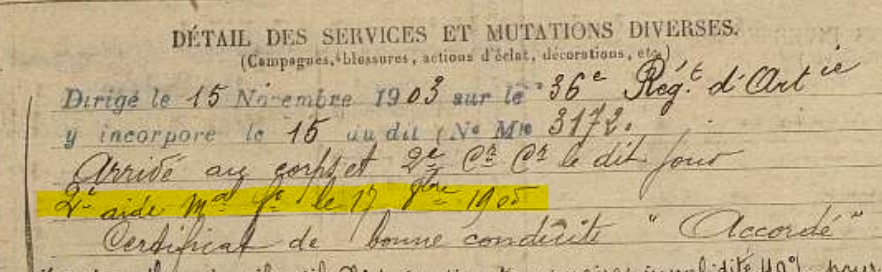 DÉTAIL DES SERVICES ET MUTATIONS DIVERSES.
(Campagnes, blessures, actions d'éclat, décorations, etc.)
Dirigé le 15 Novembre 1903 sur le 36e Régt d'Artie
y incorporé le 15 au dit (No Mle 3172.
Arrivé au corps et 2e Cr Cr le dit jour
2e aide Mal f le 17 8bre 1905
Certificat de bonne conduite "Accordé"